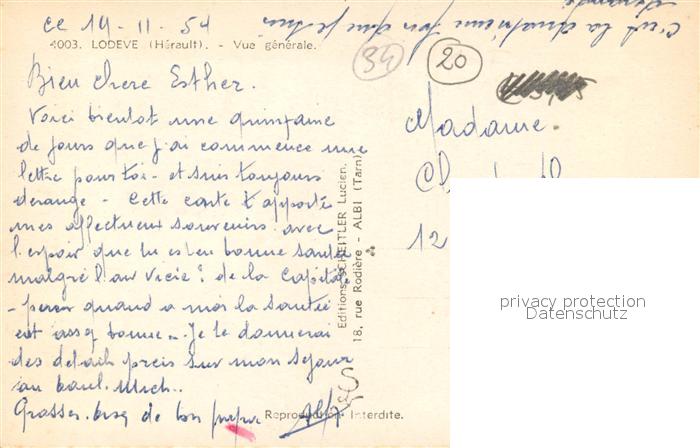 ce 19-11-54
c'est la quatrième fois que je suis
dérangé
4003. LODEVE (Hérault). - Vue générale.
34
20
Bien chere Esther.
Voici bientot une quinzaine
de jours que j'ai commence une
lettre pour toi - et suis toujours
derange - Cette carte t'apporte
mes affectueux souvenirs avec
l'espoir que tu es en bonne santé
malgré l'air vicié de la Capitale
- pour quand a moi la santé
est assez bonne... Je te donnerai
des details precis sur mon sejour
au boul. Mich..
Grosses bises de ton
Madame.
12
Editions SCHEITLER Lucien.
18, rue Rodière - ALBI (Tarn)
Reproduction Interdite.
privacy protection
Datenschutz